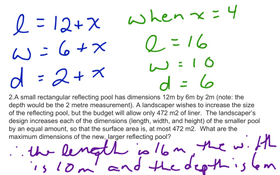 l = 12 + x
w = 6 + x
d = 2 + x
when x = 4
l = 16
w = 10
d = 6
2.A small rectangular reflecting pool has dimensions 12m by 6m by 2m (note: the
depth would be the 2 metre measurement). A landscaper wishes to increase the
size of the reflecting pool, but the budget will allow only 472 m2 of liner. The landscaper's
design increases each of the dimensions (length, width, and height) of the smaller pool
by an equal amount, so that the surface area is, at most 472 m2. What are the
maximum dimensions of the new, larger reflecting pool?
∴ the length is 16m the width
is 10m and the depth is 6m